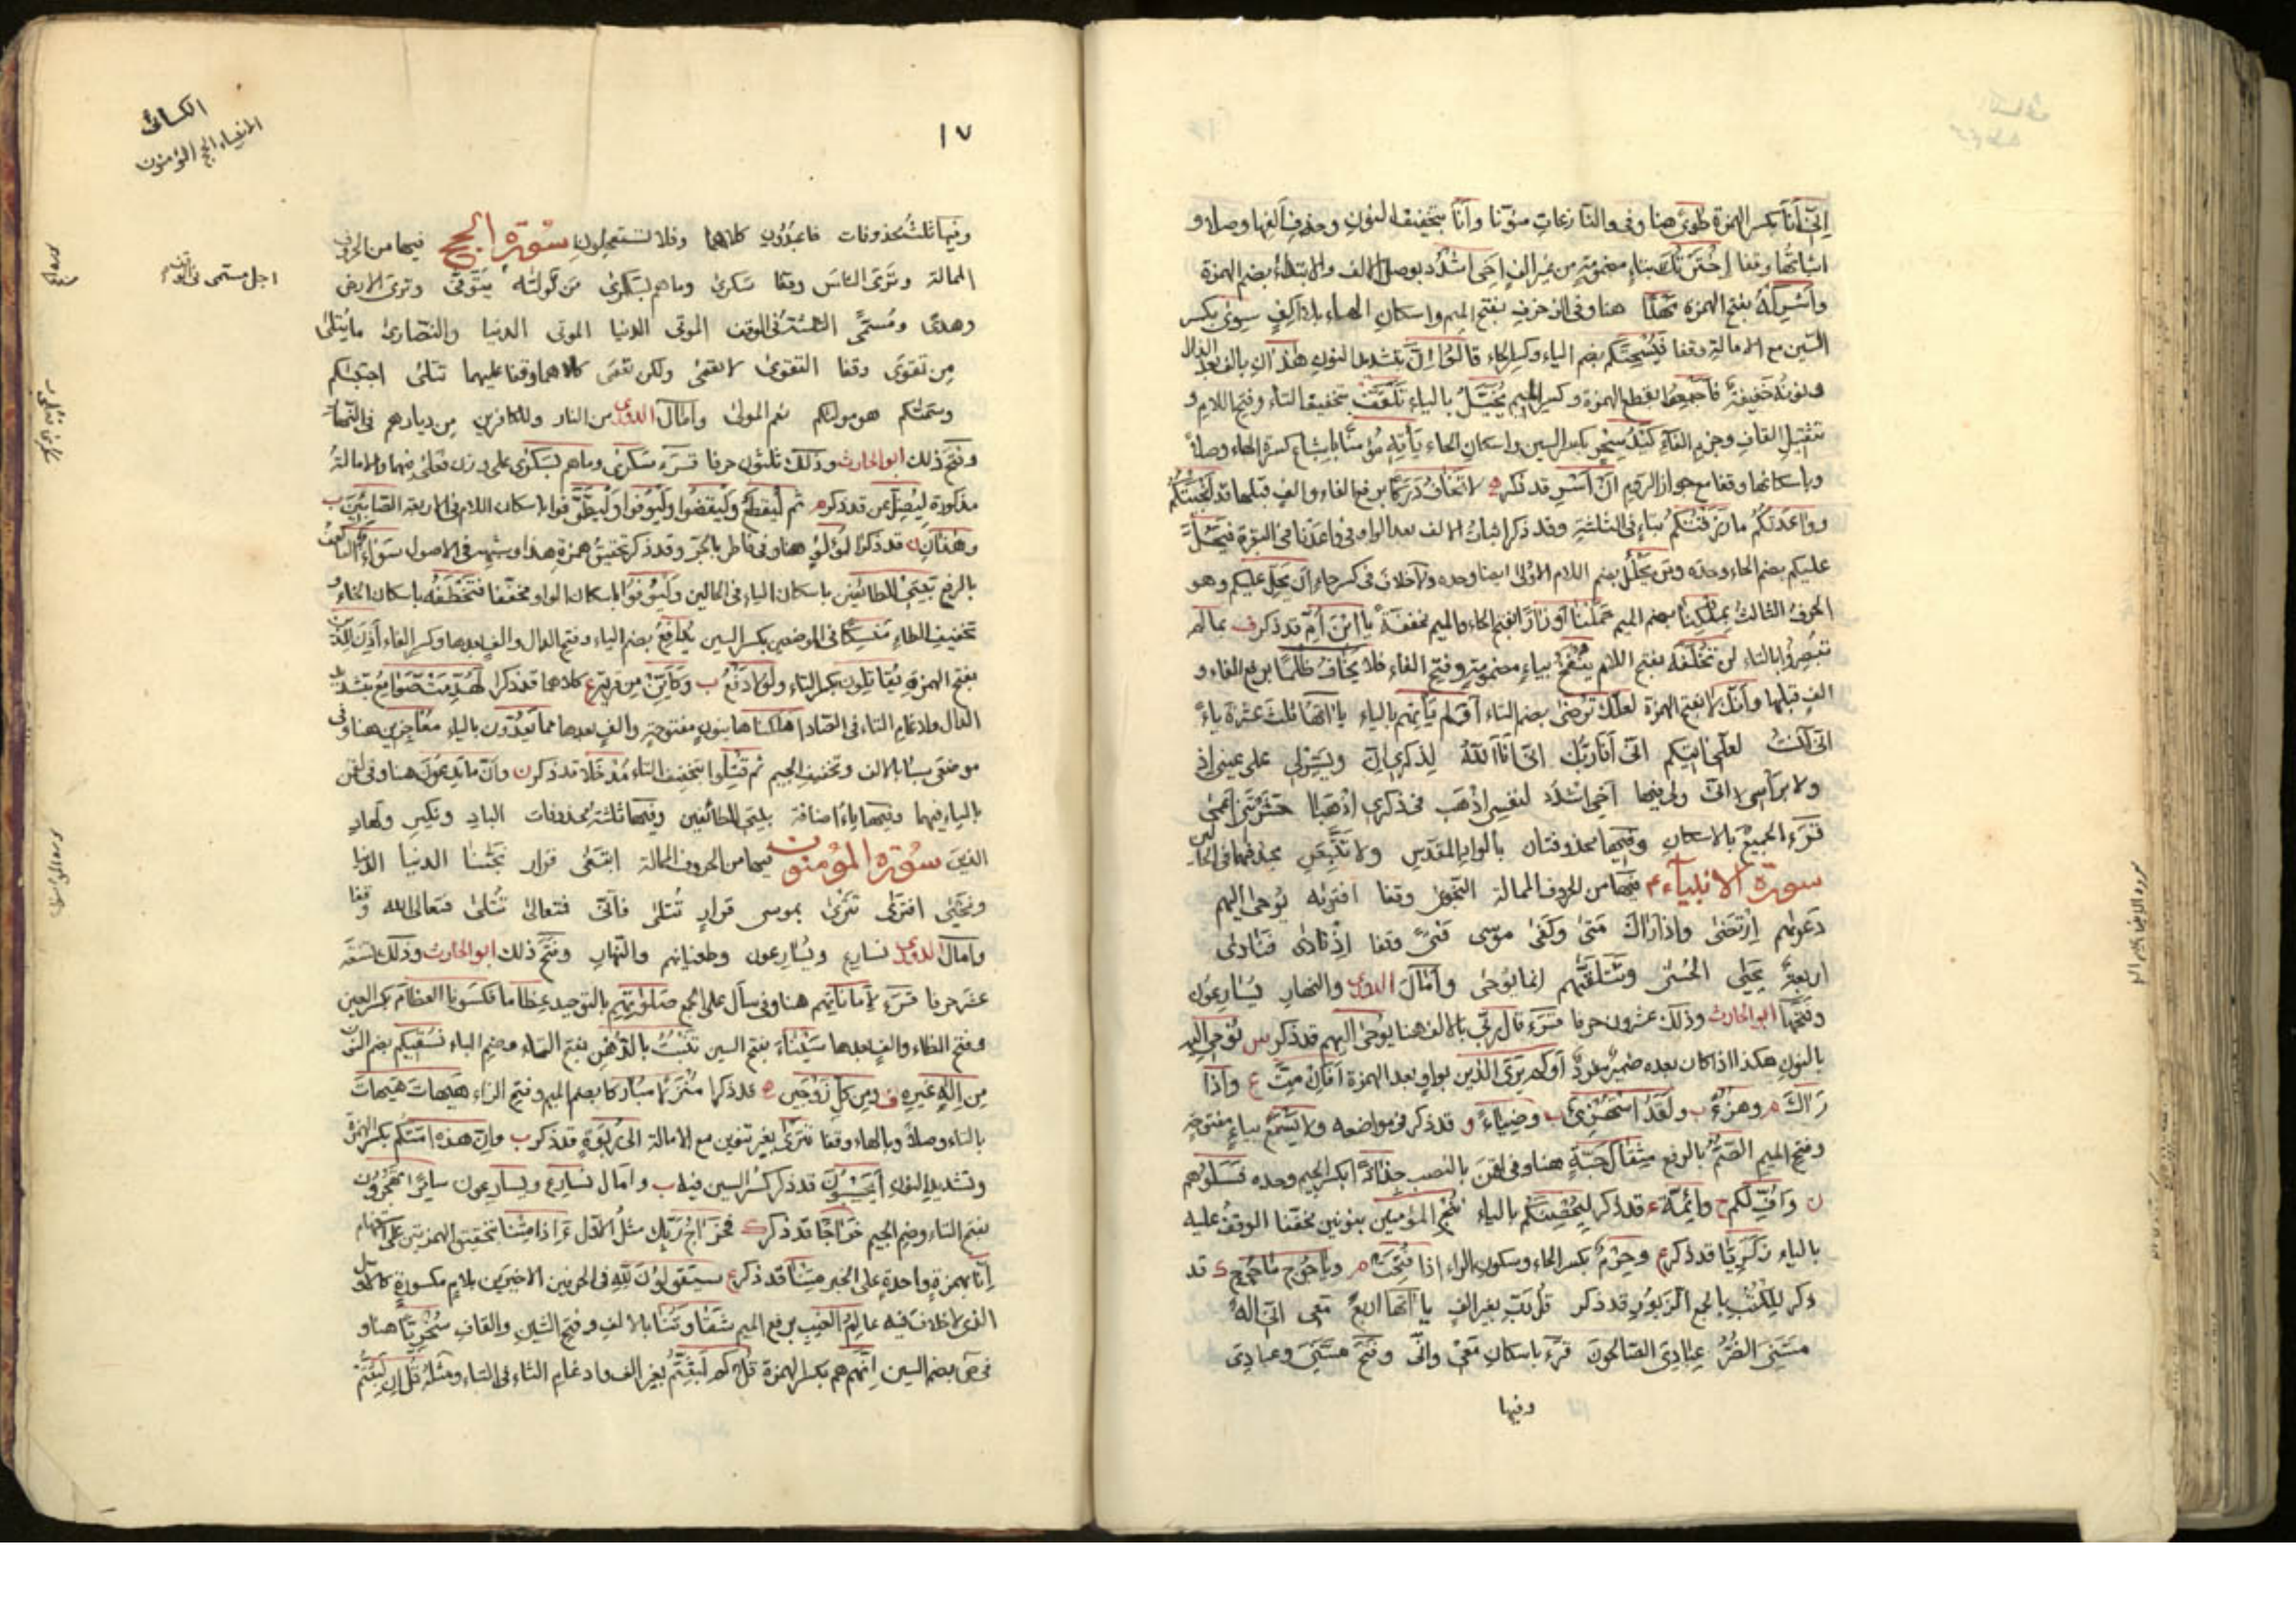 إنى أنا بكسر الهمزة طوى هنا وفى والنازعات منونا وأنا بتخفيف النون وحذف ألفها وصلا و
اثباتها وقفا اخترتك بتاء مضمومة من غير الف اخى اشدد بوصل الالف والابتداء بضم الهمزة
وأشركه بفتح الهمزة مهدا هنا وفى الزخرف بفتح الميم واسكان الهاء بلا الف سوى بكسر
السين مع الامالة وقفا فيسحتكم بضم الياء وكسر الحاء قالوا إن بتشديد النون هذان بالف بعد الذال
ونونه خفيفة فأجمعوا بقطع الهمزة وكسر الميم يخيل بالياء تلقف بتخفيف التاء وفتح اللام و
تثقيل القاف وجزم الفاء كيد سحر بكسر السين واسكان الحاء يأته مؤمنا باشباع كسرة الهاء وصلا
وباسكانها وقفا مع جواز الروم أن أسر قد ذكر لا تخاف دركا برفع الفاء والف قبلها قد أنجيتكم
وواعدتكم ما رزقتكم بتاء فى الثلثة وقد ذكر اثبات الالف بعد الواو فى واعدنا فى البقرة فيحل
عليكم بضم الحاء وحده ومن يحلل بضم اللام الاولى ايضا وحده ولا خلاف فى كسر حاء أن يحل عليكم وهو
الحرف الثالث بملكنا بضم الميم حملنا أوزارا بفتح الحاء والميم مخففة يا ابن أم قد ذكر ف بما لم
تبصروا بالتاء لن تخلفه بفتح اللام ينفخ بياء مضمومة وفتح الفاء فلا يخاف ظلما برفع الفاء و
الف قبلها وأنك لا بفتح الهمزة لعلك ترضى بضم التاء أولم يأتهم بالياء يا اتها ثلث عشرة ياء
انى آنست لعلى اتيكم انى أنا ربك اننى أنا الله لذكرى إن ويسر لى على عينى اذ
ولا برأسى انى ولى فيها أخى اشدد لنفسى اذهب فى ذكرى اذهبا حشرتنى أعمى
قرء الجميع بالاسكان وفيها محذوفتان بالواد المقدس ولا تتبعن بحذفهما فى الحالين
سورة الانبياء فيها من الحروف الممالة النجوى وقفا افتريه يوحى اليهم
دعويهم ارتضى واذا راك متى وكفى موسى فتى وقفا اذ نادى فنادى
اربعة يحيى الحسنى وتتلقيهم انما يوحى وأمال الدورى والنهار يسارعون
وفتحها ابو الحارث وذلك عشرون حرفا قرء قال ربى بالالف هنا يوحى اليهم قد ذكر س نوحى اليه
بالنون هكذا اذا كان بعده ضمير مفرد أولم ير الذين بواو بعد الهمزة أفائن مت ع واذا
راك م وهزؤا ب ولقد استهزئ ب وضياء و قد ذكر فى مواضعه ولا يسمع بياء مفتوحة
وفتح الميم الصم بالرفع مثقال حبة هنا وفى لقمن بالنصب جذاذا بكسر الجيم وحده فسلوهم
ن وأف لكم وأئمة ع قد ذكر ليحصنكم بالياء ننجى المؤمنين بنونين مخففا الوقف عليه
بالياء زكريا قد ذكر ع وحرم بكسر الحاء وسكون الراء اذا فتحت م وياجوج ماجوج ك قد
ذكر للكتب بالجمع الزبور قد ذكر قل رب بغير الف يا اتها اربع معى انى اله
مسنى الضر عبادى الصالحون قرء باسكان معى وانى وفتح مسنى وعبادى
وفيها
١٧
الكسائى
الانبياء الحج المؤمنون
وفيها ثلث محذوفات فاعبدون كلاهما وفلا تستعجلون سورة الحج فيها من الحروف
الممالة وترى الناس وقفا سكرى وما هم بسكرى من تولاه يتوفى وترى الارض
وهدى ومسمى الثلثة فى الوقف الموتى الدنيا الموتى الدنيا والنصارى ما يتلى
من تقوى وقفا التقوى لا تعمى ولكن تعمى كلاهما وقفا عليهما تتلى اجتبيكم
وسميكم هو موليكم نعم المولى وأمال الدورى من النار وللكافرين من ديارهم فى النهار
وفتح ذلك ابو الحارث وذلك ثلثون حرفا قرء سكرى وما هم بسكرى على وزن فعلى فيهما والامالة
مذكورة ليضل عن قد ذكر م ثم ليقطع وليقضوا وليوفوا وليطوفوا باسكان اللام فى الاربعة الصابئين ب
وهذان قد ذكر لؤلؤ هنا وفى فاطر بالجر وقد ذكر تحقيق همزة هذا وشبهه فى الاصول سواء العاكف
بالرفع بيتى للطائفين باسكان الياء فى الحالين وليوفوا باسكان الواو مخففا فتخطفه باسكان الخاء و
تخفيف الطاء منسكا فى الموضعين بكسر السين يدافع بضم الياء وفتح الدال والف بعدها وكسر الفاء أذن للذين
بفتح الهمزة يقاتلون بكسر التاء ولولا دفع ب وكأين من قرية ع كلاهما قد ذكر لهدمت صوامع بتشديد
الدال وادغام التاء فى الصاد أهلكناها بنون مفتوحة والف بعدها مما يعدون بالياء معاجزين هنا وفى
موضعى سبا بالالف وتخفيف الجيم ثم قتلوا بتخفيف التاء مدخلا قد ذكر ن وأن ما يدعون هنا وفى لقمن
بالياء فيهما وفيها ياء اضافة بيتى للطائفين وفيها ثلثة محذوفات الباد ونكير ولهاد
الذين سورة المؤمنون فيها من الحروف الممالة ابتغى قرار نجينا الدنيا الدنيا
ونحيى افترى تترى بموسى قرار تتلى فأنى فتعالى تتلى فتعالى الله وقفا
وأمال الدورى نسارع ويسارعون وطغيانهم والنهار وفتح ذلك ابو الحارث وذلك تسعة
عشر حرفا قرء لأماناتهم هنا وفى سأل على الجمع صلوتهم بالتوحيد عظاما فكسونا العظام بكسر العين
وفتح الظاء والف بعدها سيناء بفتح السين تنبت بالدهن بفتح التاء وضم الباء نسقيكم بضم النون
من اله غيره ف ومن كل زوجين ه قد ذكرا منزلا مباركا بضم الميم وفتح الزاء هيهات هيهات
بالتاء وصلا وبالهاء وقفا تترى بغير تنوين مع الامالة الى ربوة قد ذكر ب وان هذه امتكم بكسر الهمزة
وتشديد النون أيحسبون قد ذكر كسر السين فيه ب وأمال نسارع ويسارعون سامرا تهجرون
بفتح التاء وضم الجيم خراجا قد ذكر ك فخراج ربك مثل الاول ءاذا متنا بتحقيق الهمزتين على الاستفهام
إنا بهمزة واحدة على الخبر متنا قد ذكر ع سيقولون لله فى الحرفين الاخيرين بلام مكسورة كالاول
الذى لا خلاف فيه عالم الغيب برفع الميم شقاوتنا بالالف وفتح الشين والقاف سخريا هنا و
فى ص بضم السين إنهم هم بكسر الهمزة قل كم لبثتم بغير الف وادغام الثاء فى التاء ومثله قل ان لبثتم
اجل مسمى فى الوقف